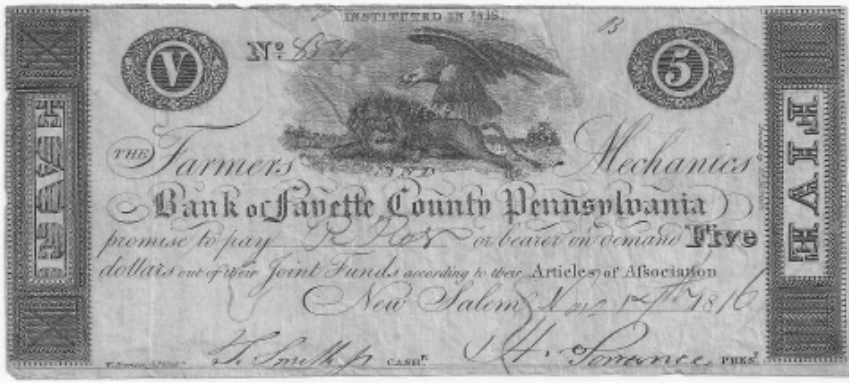 INSTITUTED IN 1816.
B
V
Nº 854
5
FIVE
FIVE
THE Farmers AND Mechanics
Bank of Fayette County Pennsylvania
promise to pay or bearer on demand Five
dollars out of their Joint Funds according to their Articles of Aſsociation
New Salem Nov 1816
CASHR. H. Torrance PREST.